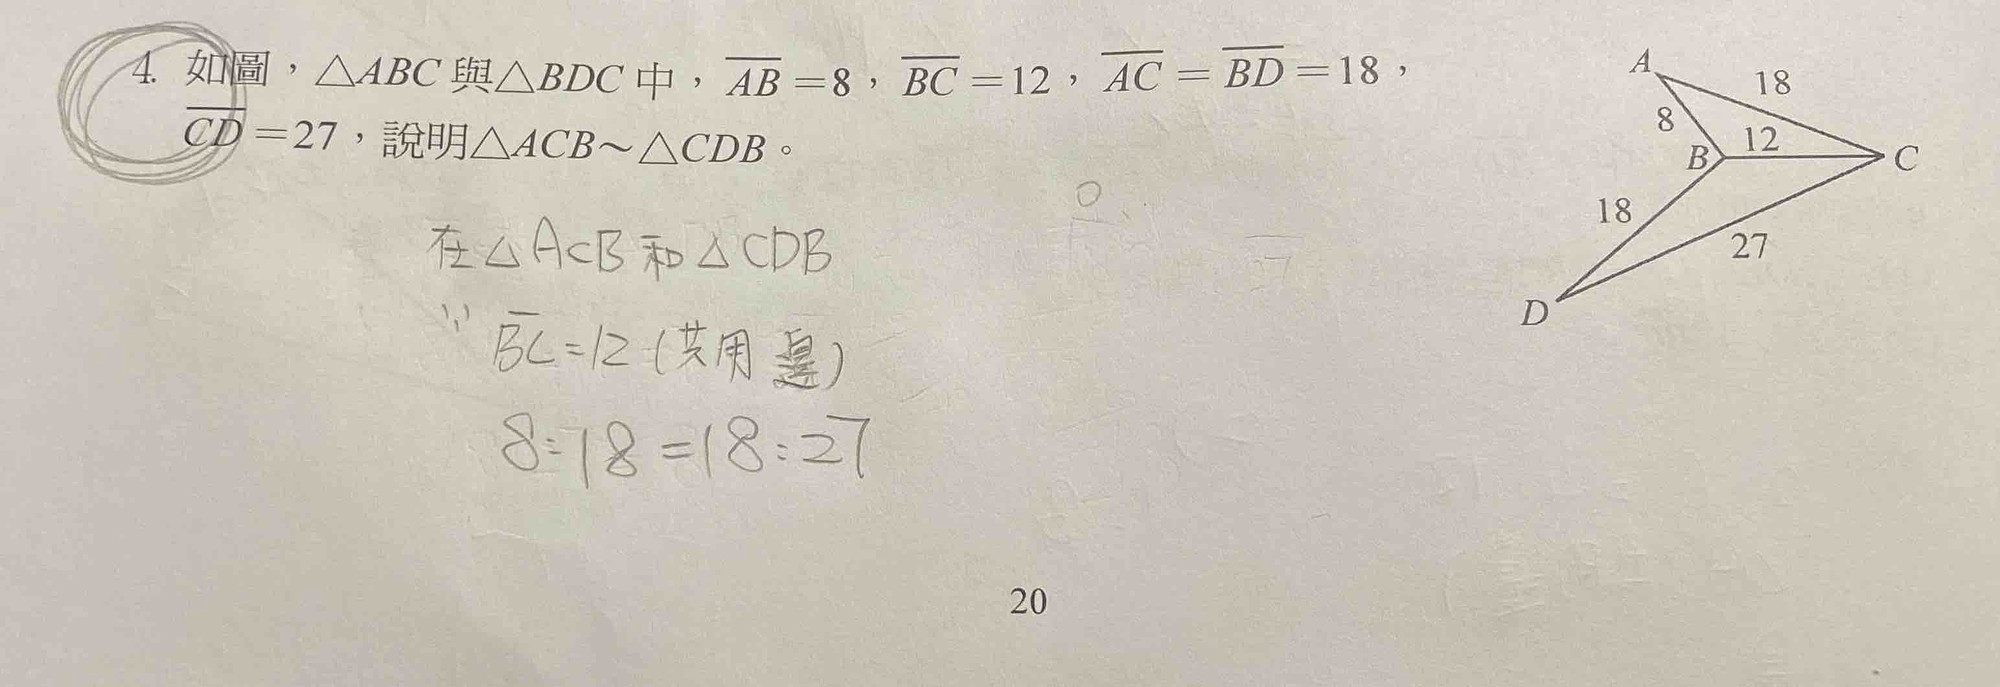 4. 如圖，△ABC與△BDC中，AB=8，BC=12，AC=BD=18，
CD=27，說明△ACB～△CDB。
A
18
8
12
B
C
18
27
D
在△ACB和△CDB
∵ BC=12(共用邊)
8:18=18:27
20